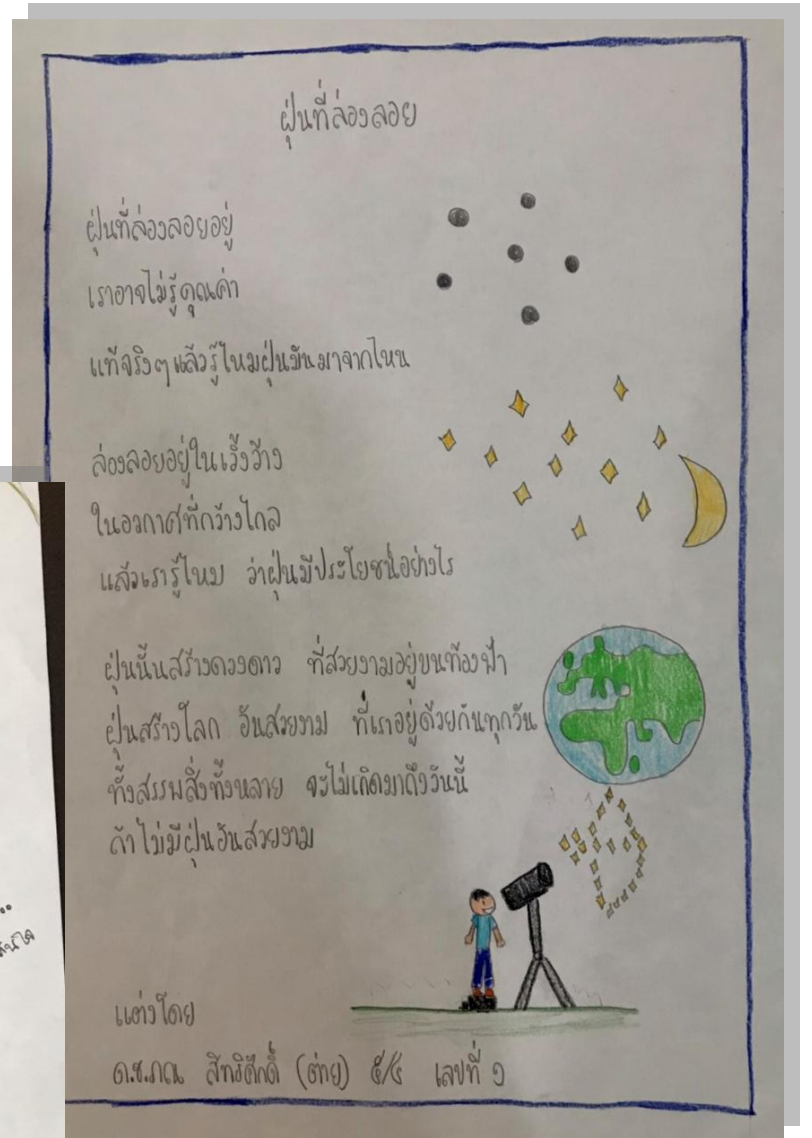 ฝุ่นที่ล่องลอย
ฝุ่นที่ล่องลอยอยู่
เราอาจไม่รู้คุณค่า
แท้จริงๆแล้วรู้ไหมฝุ่นมันมาจากไหน
ล่องลอยอยู่ในเวิ้งว้าง
ในอวกาศที่กว้างไกล
แล้วเรารู้ไหม ว่าฝุ่นมีประโยชน์อย่างไร
ฝุ่นนั้นสร้างดวงดาว ที่สวยงามอยู่บนท้องฟ้า
ฝุ่นสร้างโลก อันสวยงาม ที่เราอยู่ด้วยกันทุกวัน
ทั้งสรรพสิ่งทั้งหลาย จะไม่เกิดมาถึงวันนี้
ถ้าไม่มีฝุ่นอันสวยงาม
แต่งโดย
ด.ช.ภณ สิทธิศักดิ์ (ต่าย) ๕/๕ เลขที่ ๑